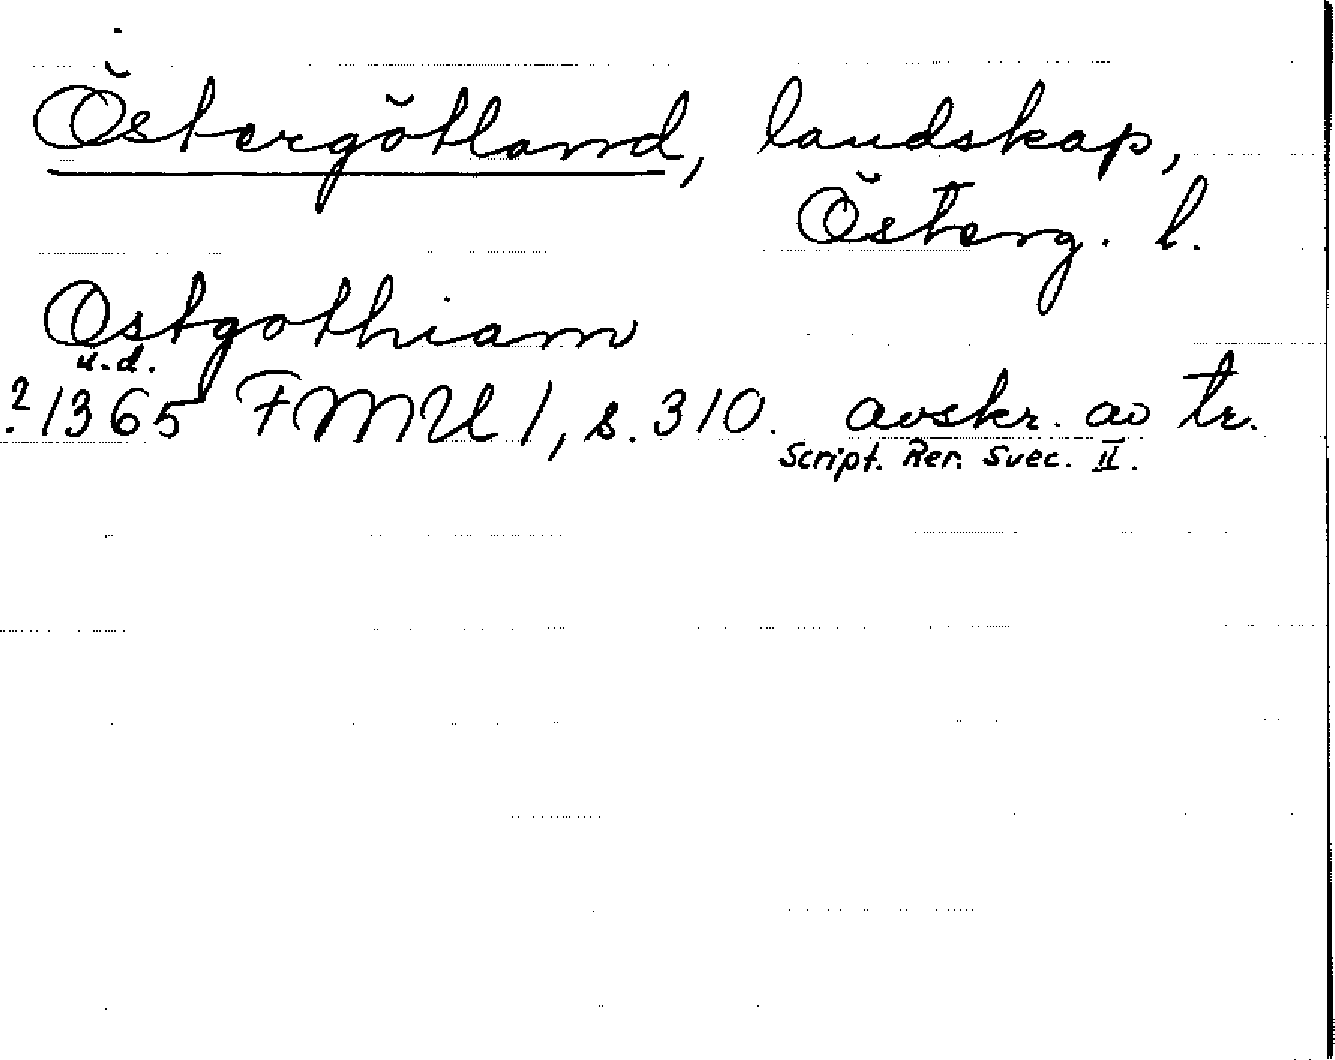 Östergötland, landskap,
Österg. l.
Ostgothiam
u.d.
?1365 FMU 1, s. 310. avskr. av tr.
Script. Rer. Svec. II.